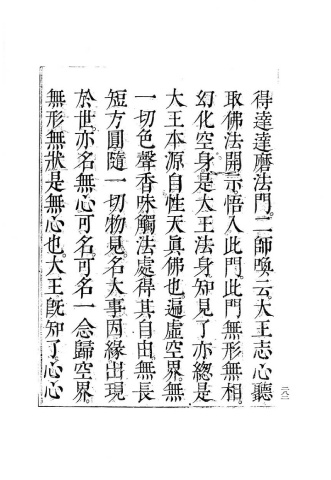 得達達磨法門。二師喚云。大王志心聽
取佛法開示悟入此門。此門無形無相。
幻化空身是大王法身知見了亦總是
大王本源自性天真佛也。遍虛空界。無
一切色聲香味觸法處得其自由。無長
短方圓隨一切物見名大事因緣出現
於世。亦名無心可名。可名一念歸空界。
無形無狀是無心也。大王既知了。心心